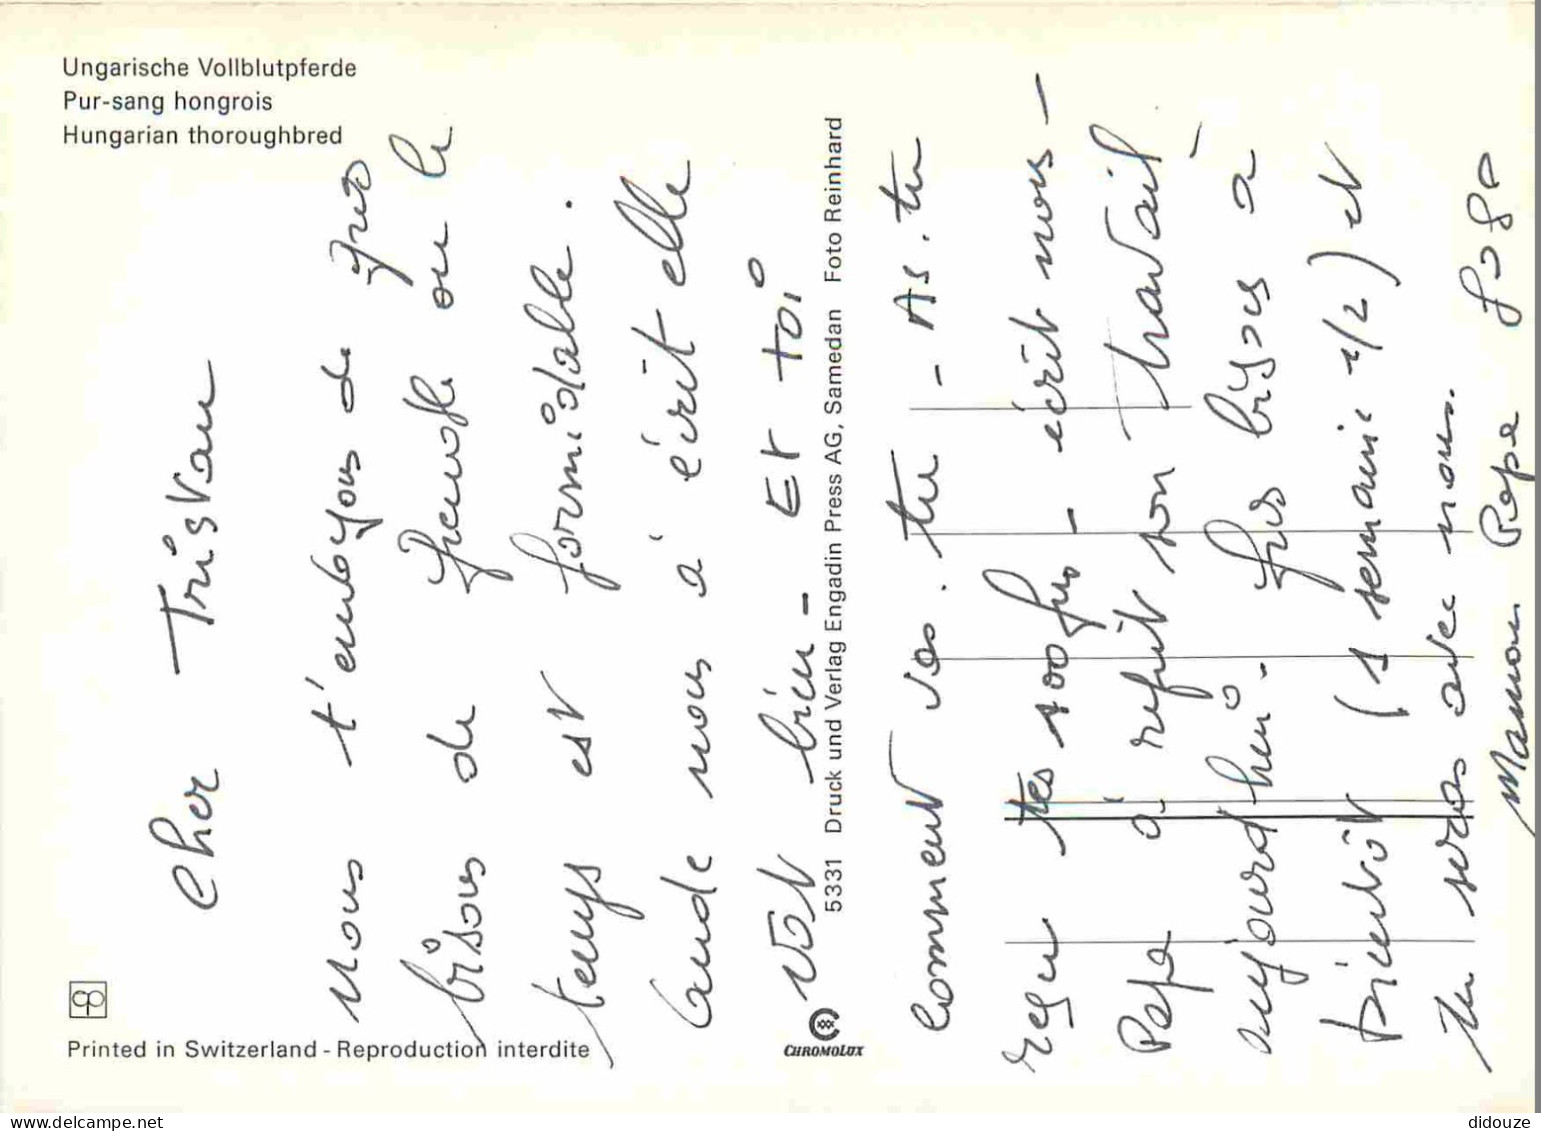 Ungarische Vollblutpferde
Pur-sang hongrois
Hungarian thoroughbred
Cher Tristan
nous t'envoyons de gros
bisous de Grenoble ou le
temps est formidable.
Laude nous a écrit elle
voit bien - Et toi
comment vas. tu - As. tu
reçu tes 100 frs - écrit nous -
Pepe à repris son travail
aujourd'hui - gros bisous à
bientôt (1 semaine 1/2) et
tu seras avec nous.
Maman Pepe
5331 Druck und Verlag Engadin Press AG, Samedan Foto Reinhard
Printed in Switzerland - Reproduction interdite
CHROMOLUX
delcampe.net
didouze